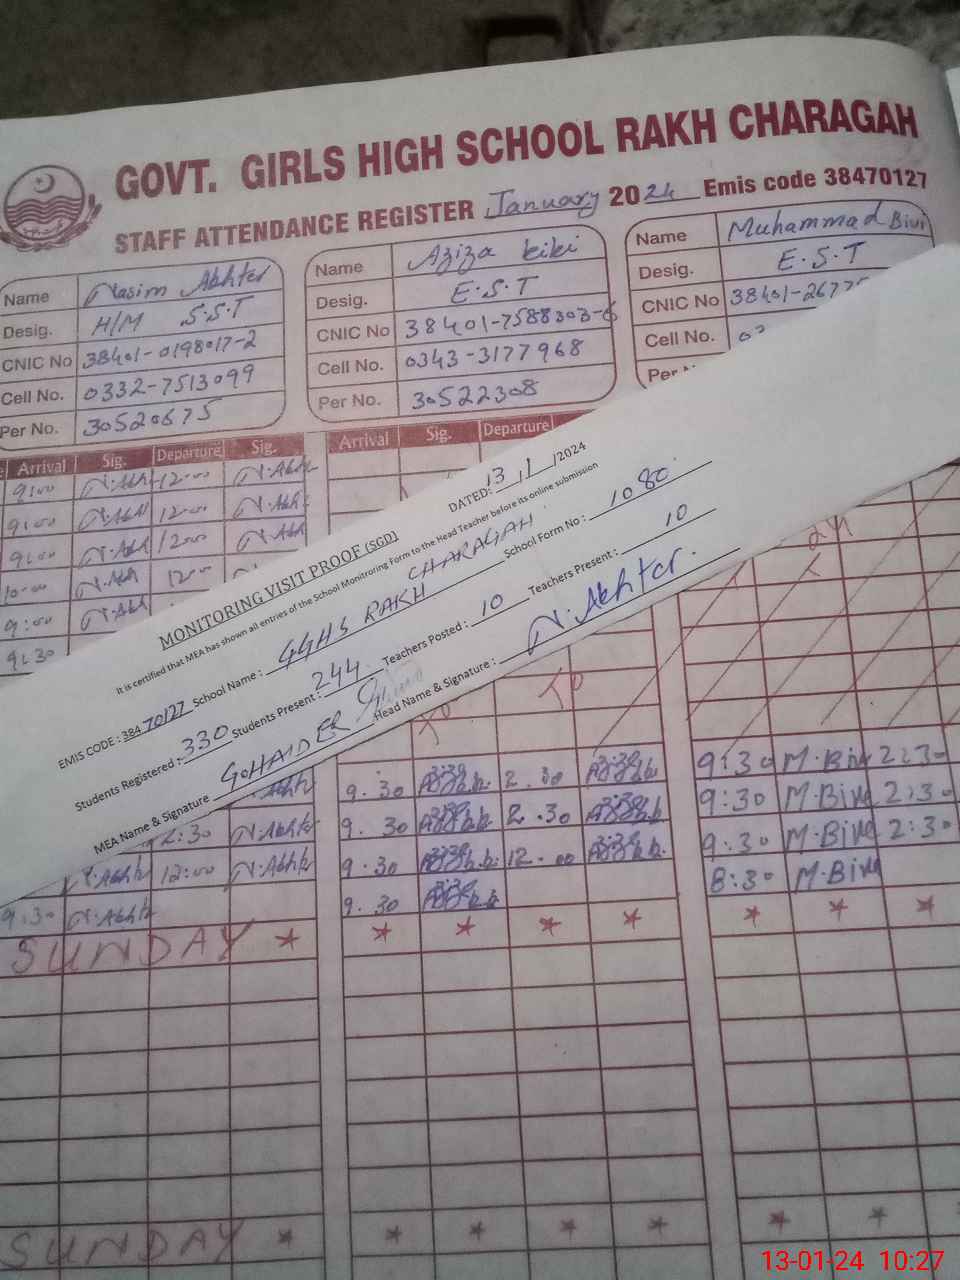 GOVT. GIRLS HIGH SCHOOL RAKH CHARAGAH
STAFF ATTENDANCE REGISTER January 2024 Emis code 38470127
Name Nasim Akhter
Desig. H/M S.S.T
CNIC No 38401-0198017-2
Cell No. 0332-7513099
Per No. 30520675
Name Aziza bibi
Desig. E.S.T
CNIC No 38401-7588303-6
Cell No. 0343-3177968
Per No. 30522308
Name Muhammad Bivi
Desig. E.S.T
CNIC No 38401-2677
Cell No. 03
Per
Arrival Sig. Departure Sig.
9:00 N.Akh 12:00 N.Akh
9:00 N.Akh 12:00 N.Akh
9:00 N.Akh 12:00 N.Akh
10:00 N.Akh 12:00
9:00 N.Akh
9:30
Arrival Sig. Departure
MONITORING VISIT PROOF (SGD)
DATED: 13/1/2024
It is certified that MEA has shown all entries of the School Monitroring Form to the Head Teacher before its online submission
EMIS CODE : 38470127 School Name : GGHS RAKH CHARAGAH School Form No : 1080
Students Registered : 330 Students Present : 244 Teachers Posted : 10 Teachers Present : 10
MEA Name & Signature G.HAIDER Head Name & Signature : N.Akhter.
2:30 N.Akhtr
N.Akhtr 12:00 N.Akhtr
9:30 N.Akhtr
SUNDAY *
9.30 2.30
9.30 2.30
9.30 12.00
9.30
* * * *
9:30 M.Bivi 2:30
9:30 M.Bivi 2:30
9:30 M.Bivi 2:30
8:30 M.Bivi
* * *
SUNDAY * * * * * * *
13-01-24 10:27